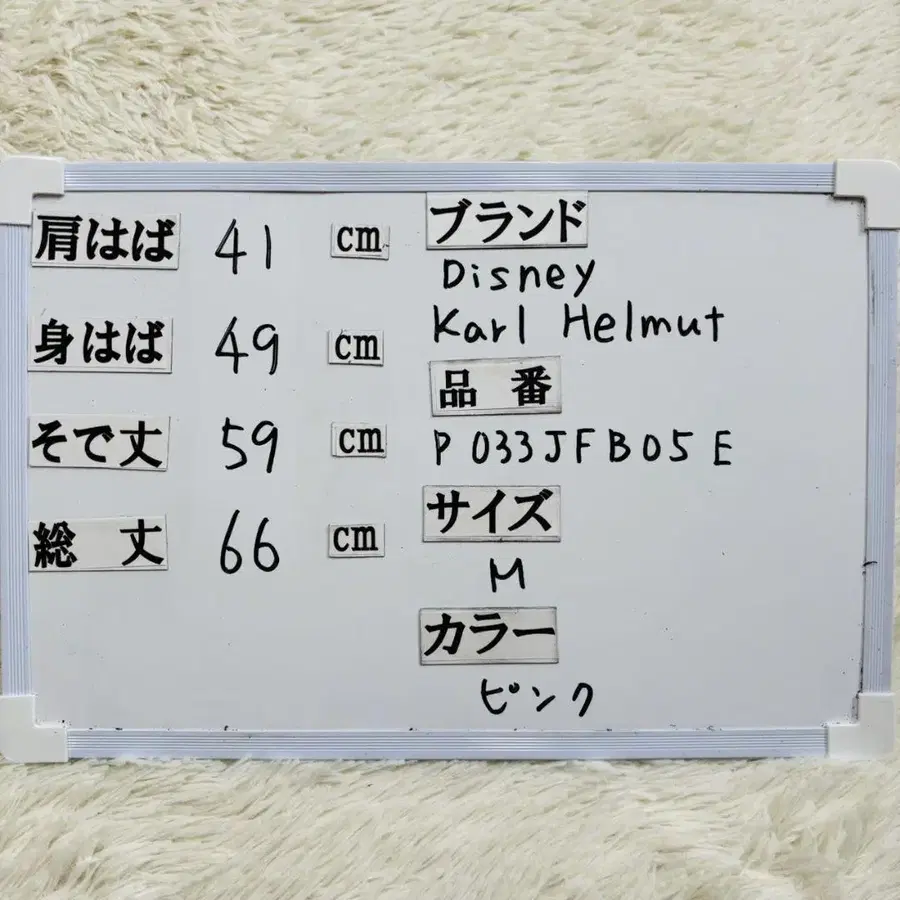 肩はば 41 cm
身はば 49 cm
そで丈 59 cm
総 丈 66 cm
ブランド
Disney
Karl Helmut
品 番
P033JFB05E
サイズ
M
カラー
ピンク